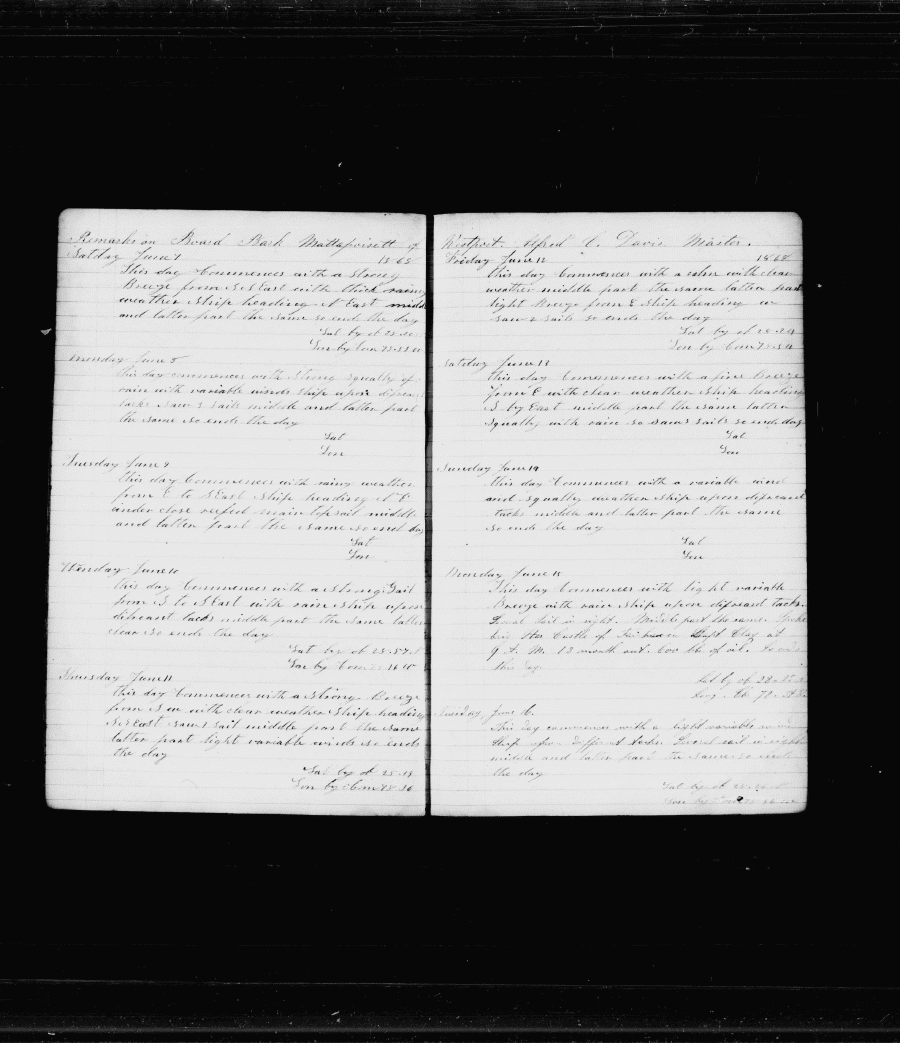 Remarks on Board Bark Mattapoisett of
Satday June 7 1868
This day Commences with a strong
Breeze from S S East with thick rainy
weather Ship heading N East middle
and latter part the same so end the day
Lat by ob 28
Lon by Crm
Monday June 8
this day commences with strong squalls of
rain with variable winds ship upon
tacks Saw 2 sails middle and latter part
the same so end the day
Lat
Lon
Tuesday June 9
this day Commences with rainy weather
from E to S East Ship heading N E
under close reefed main topsail middle
and latter part the same so end day
Lat
Lon
Wenday June 10
this day Commences with a strong Gail
from S to S East with rain Ship upon
difreant tacks middle part the same latter
clear so ends the day
Lat by ob 28
Lon by Crm
Thursday June 11
this day Commences with a strong Breeze
from S W with clear weather Ship heading
S S East Saw 1 sail middle part the same
latter part light variable winds so ends
the day
Lat by ob 28 18
Lon by Crm 78 36
Westport. Alfred C. Davis Master.
Friday June 12 1868
this day Commences with a calm with clear
weather middle part the same latter part
light Breeze from E Ship heading
Saw 2 sails so ends the day
Lat by ob 28 24
Lon by Crm 78
Satday June 13
this day Commences with a fine Breeze
from E with clear weather Ship heading
S by East middle part the same latter
squally with rain so saw 2 sails so ends day
Lat
Lon
Sunday June 14
this day Commences with a variable wind
and squally weather Ship upon difreant
tacks middle and latter part the same
so ends the day
Lat
Lon
Monday June 15
this day Commences with light variable
Breeze with rain Ship upon difreant tacks.
Several sail in sight. Middle part the same. Spoke
brig Star Castle of Capt Clay at
9 A. M. 13 month out. 600 bbl of oil.
the day
Lat by ob 28
Long
Tuesday June 16.
This day commences with a light variable wind
Ship upon different tacks. Several sail in sight
middle and latter part the same so ends
the day
Lat by ob
Lon by Crm